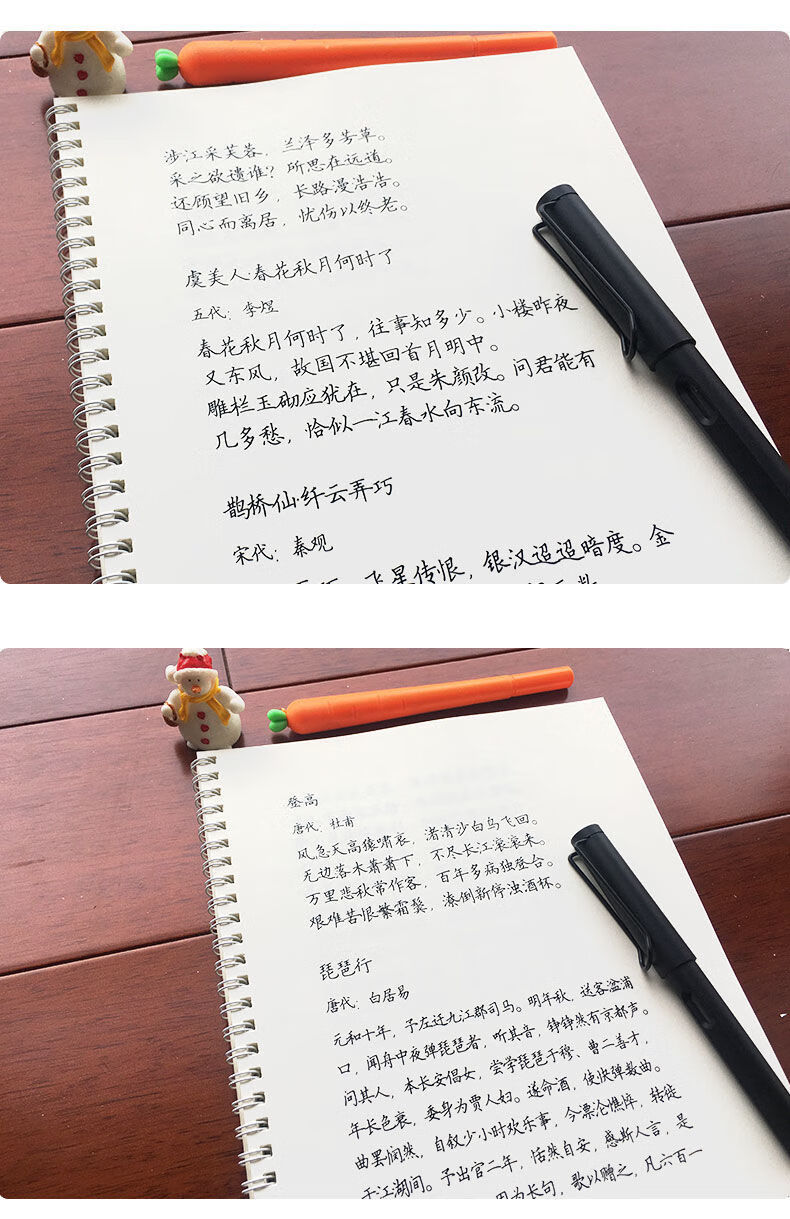 涉江采芙蓉，兰泽多芳草。
采之欲遗谁？所思在远道。
还顾望旧乡，长路漫浩浩。
同心而离居，忧伤以终老。
虞美人·春花秋月何时了
五代：李煜
春花秋月何时了，往事知多少。小楼昨夜
又东风，故国不堪回首月明中。
雕栏玉砌应犹在，只是朱颜改。问君能有
几多愁，恰似一江春水向东流。
鹊桥仙·纤云弄巧
宋代：秦观
飞星传恨，银汉迢迢暗度。金
登高
唐代：杜甫
风急天高猿啸哀，渚清沙白鸟飞回。
无边落木萧萧下，不尽长江滚滚来。
万里悲秋常作客，百年多病独登台。
艰难苦恨繁霜鬓，潦倒新停浊酒杯。
琵琶行
唐代：白居易
元和十年，予左迁九江郡司马。明年秋，送客湓浦
口，闻舟中夜弹琵琶者，听其音，铮铮然有京都声。
问其人，本长安倡女，尝学琵琶于穆、曹二善才，
年长色衰，委身为贾人妇。遂命酒，使快弹数曲。
曲罢悯然，自叙少小时欢乐事，今漂沦憔悴，转徙
于江湖间。予出官二年，恬然自安，感斯人言，是
因为长句，歌以赠之，凡六百一